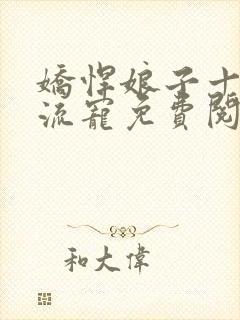 嬌悍娘子十
流寵免費閱
和大偉